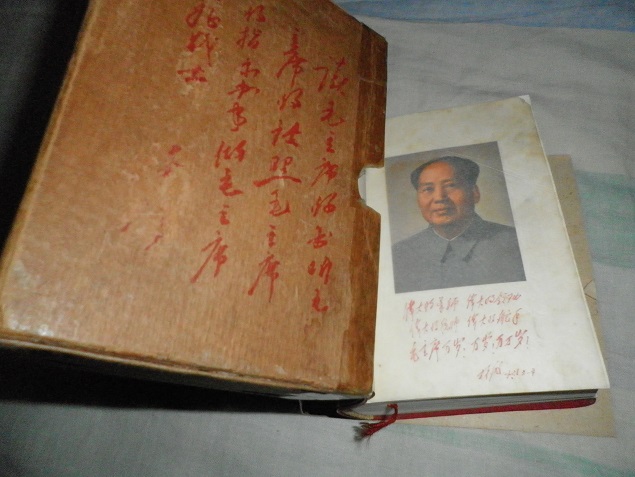 读毛主席的书听毛
主席的话照毛主席
的指示办事做毛主席
好战士
林彪
伟大的导师 伟大的领袖
伟大的统帅 伟大的舵手
毛主席万岁!万岁!万万岁!
林彪